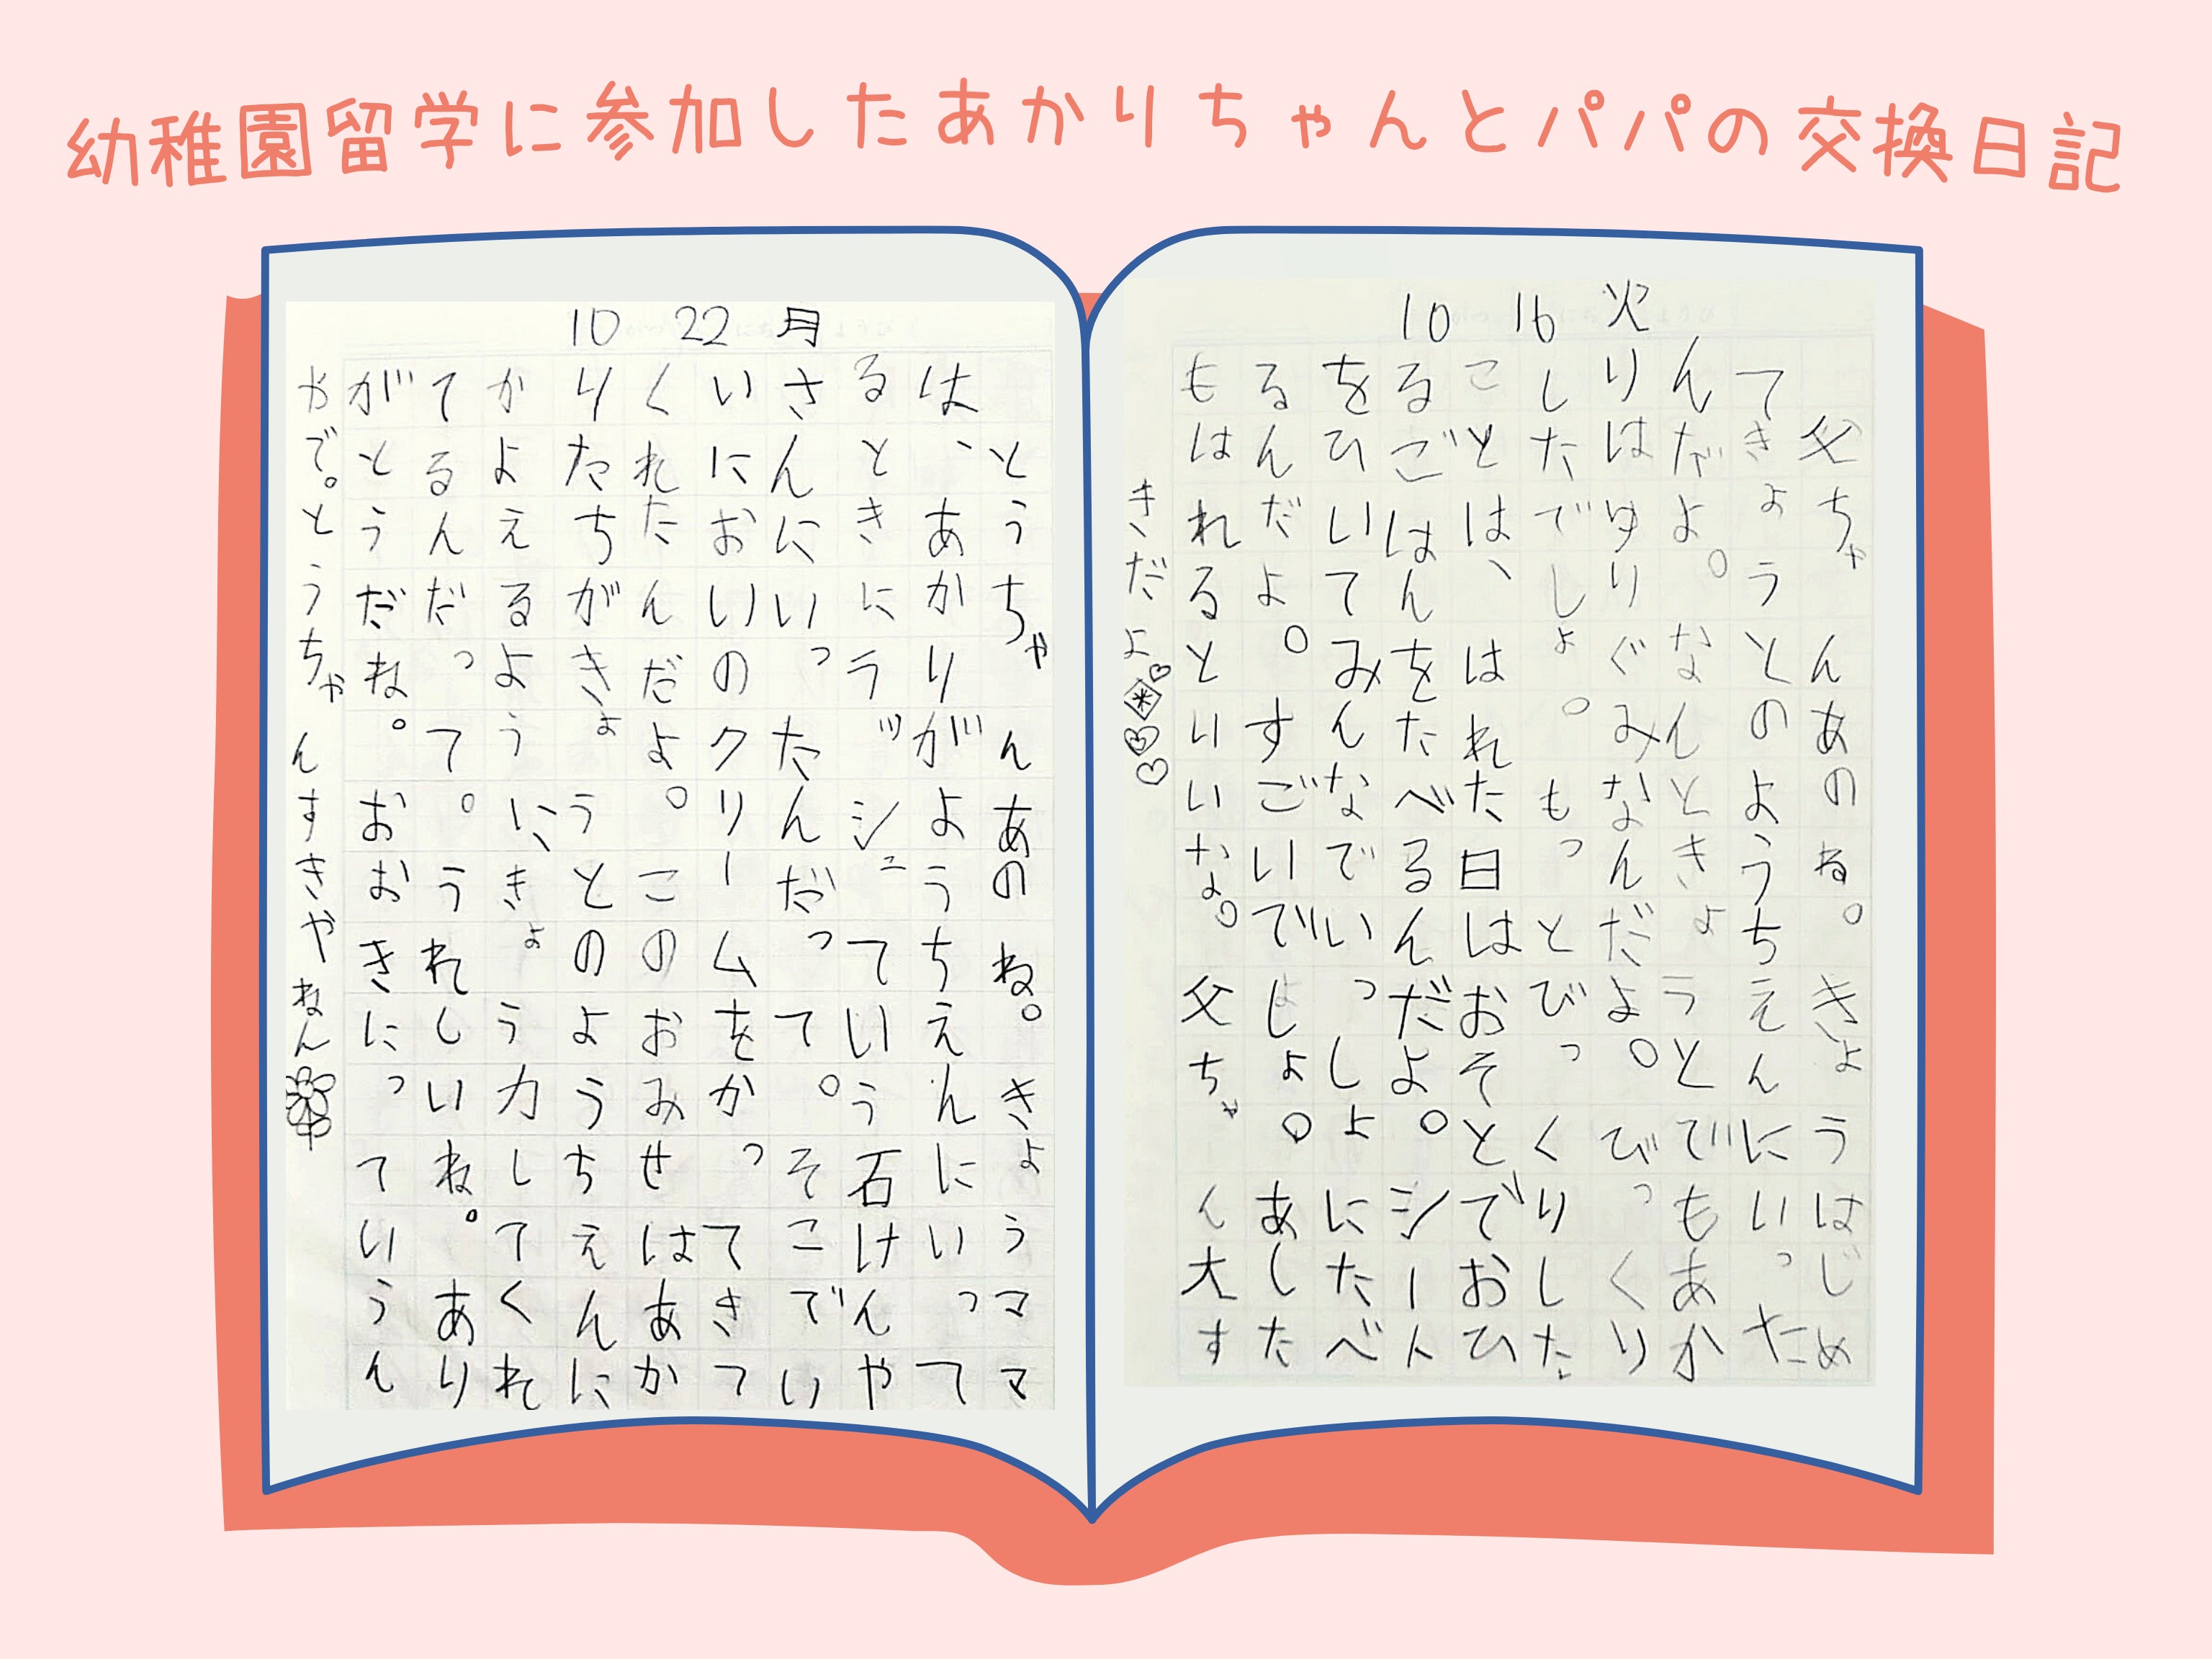 幼稚園留学に参加したあかりちゃんとパパの交換日記
10 16 火
父ちゃんあのね。きょうはじめ
てきょうとのようちえんにいった
んだよ。なんときょうとでもあか
りはゆりぐみなんだよ。びっくり
したでしょ。もっとびっくりした
ことは、はれた日はおそとでおひ
るごはんをたべるんだよ。シート
をひいてみんなでいっしょにたべ
るんだよ。すごいでしょ。あした
もはれるといいな。父ちゃん大す
きだよ
10 22 月
とうちゃんあのね。きょうママ
は、あかりがようちえんにいって
るときにラッシュていう石けんや
さんにいったんだって。そこでい
いにおいのクリームをかってきて
くれたんだよ。このおみせはあか
りたちがきょうとのようちえんに
かよえるように、きょう力してくれ
てるんだって。うれしいね。あり
がとうだね。おおきにっていうん
やで。とうちゃんすきやねん